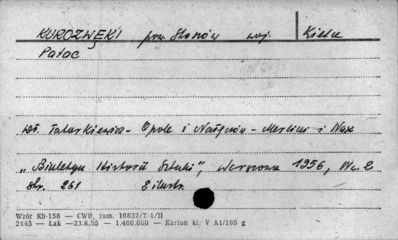 KUROZWĘKI pow. Stopnów woj. Kielce
Pałac
Wł. Tatarkiewicz - Opole i Nałęczów - Merlini i Nax
„Biuletyn Historii Sztuki", Warszawa 1956, Nr. 2
str. 261 8 ilustr.
Wzór Kb-156 — CWD, zam. 10637/T-1/II
2445 — Łak —23.8.55 — 1.460.000 — Karton kl. V A1/180 g